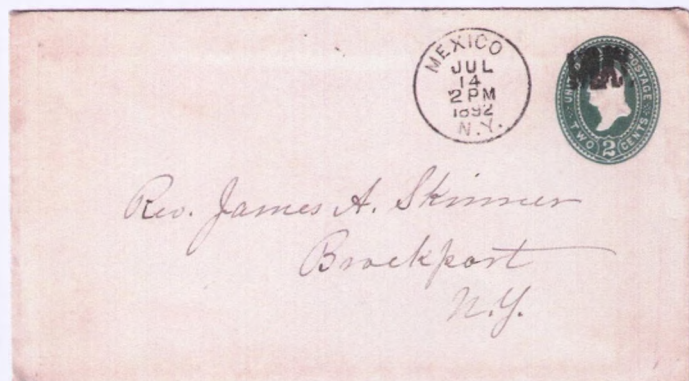 MEXICO
JUL
14
2 PM
1892
N.Y.
UNITED STATES POSTAGE
TWO 2 CENTS
Rev. James A. Skinner
Brockport
N.Y.